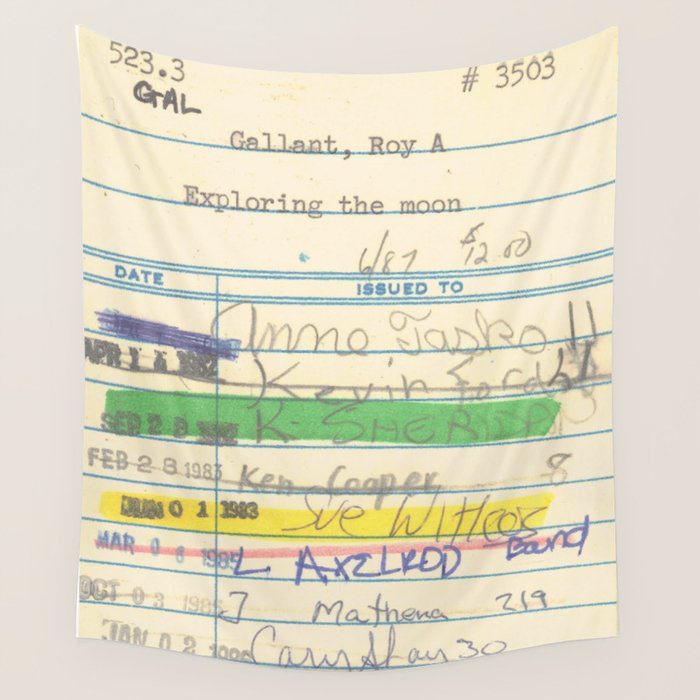 523.3 # 3503
GAL
Gallant, Roy A
Exploring the moon
6/87 $12.00
DATE ISSUED TO
Anne Tasko 11
APR 14 1982 Kevin Ford
SEP 28 K. SHERIFF
FEB 28 1983 Ken Cooper 8
JUN 01 1983 Sue Witcox
MAR 06 1985 L AXELROD Bound
OCT 03 1986 J Mathena 219
JAN 02 30